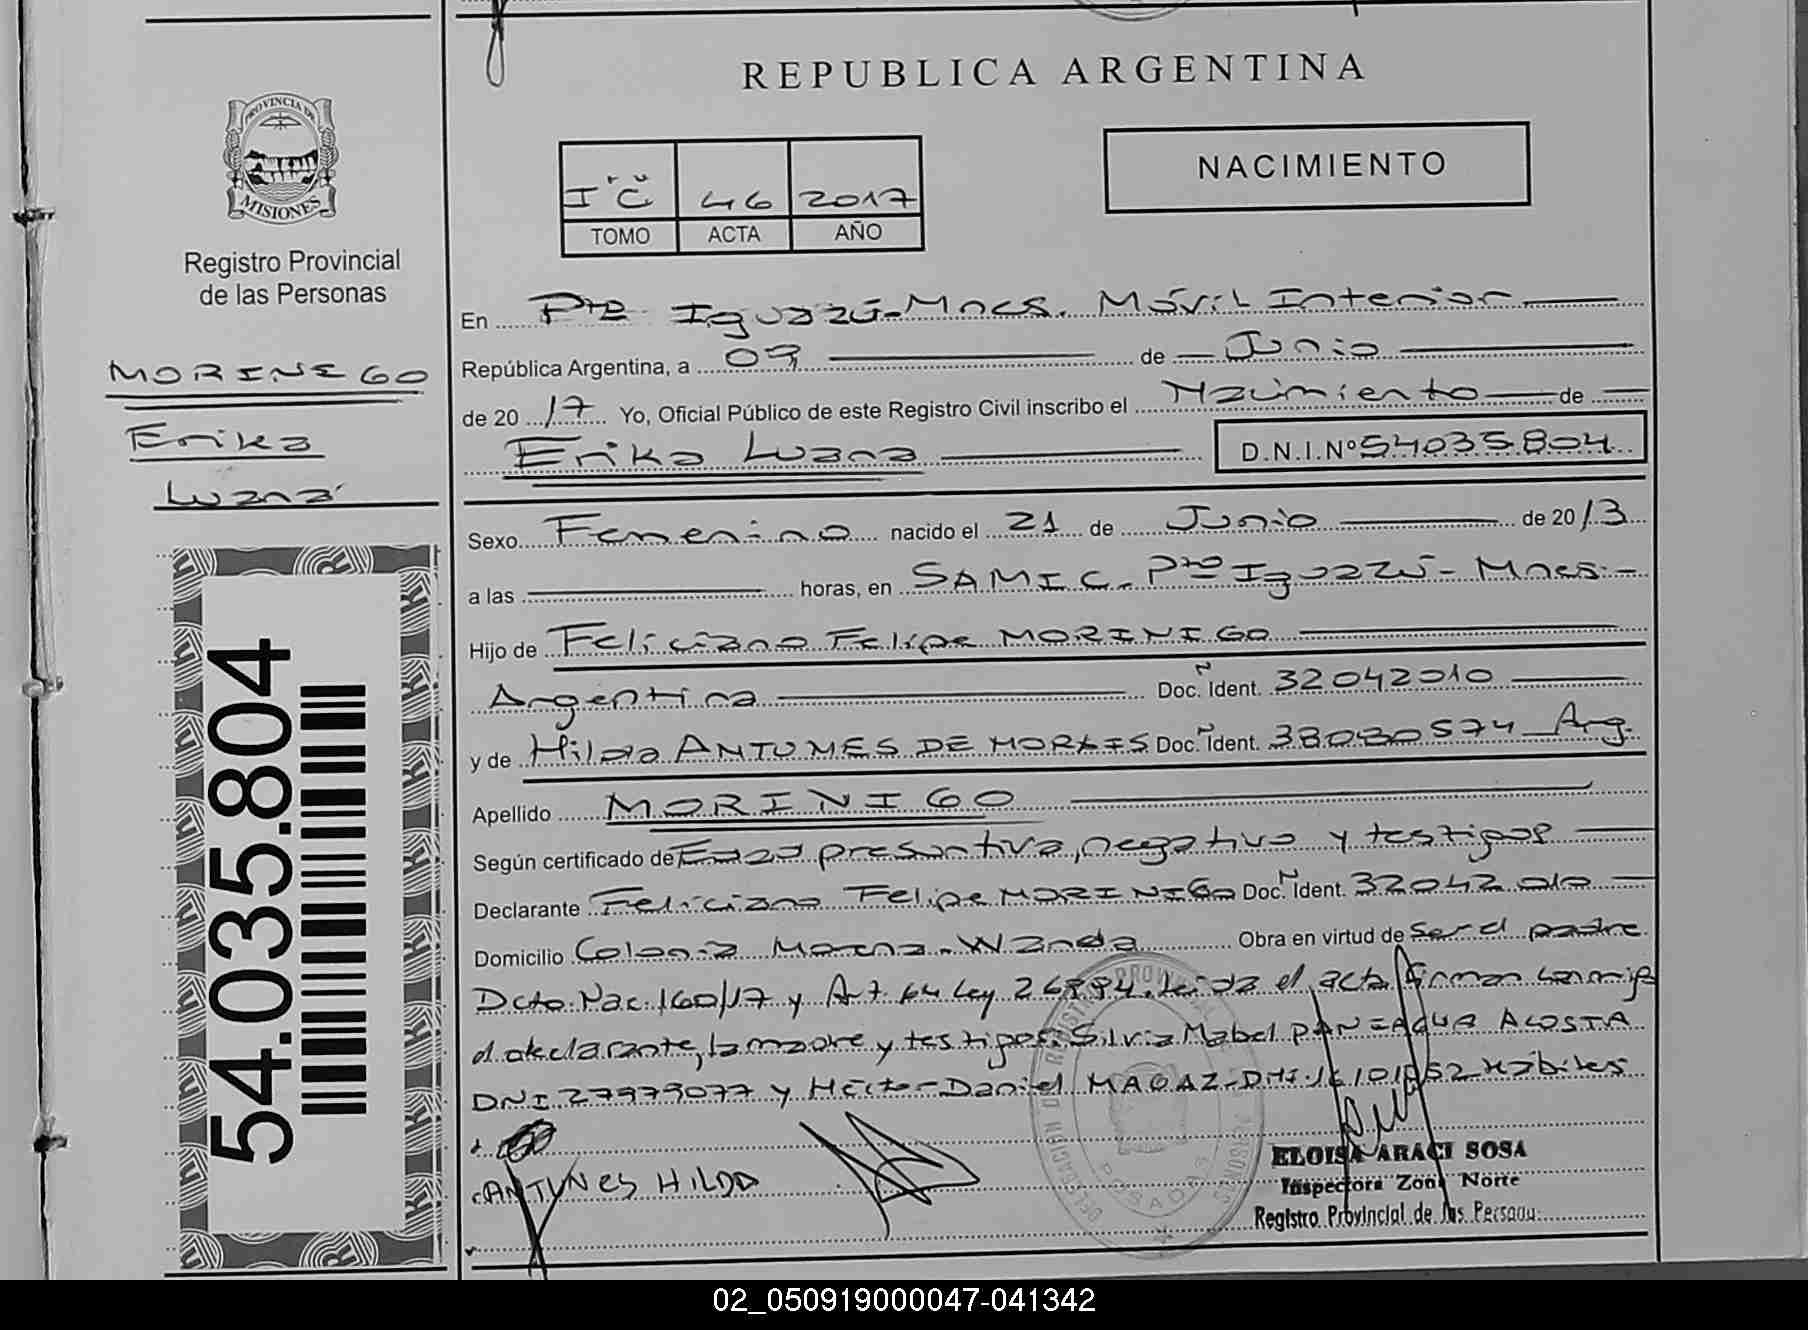 REPUBLICA ARGENTINA
PROVINCIA DE
MISIONES
Registro Provincial
de las Personas
MORINEGO
Erika
Luana
54.035.804
I "C" 46 2017
TOMO ACTA AÑO
NACIMIENTO
En Pto Iguazú-Mnes. Móvil Interior
República Argentina, a 09 de Junio
de 2017 Yo, Oficial Público de este Registro Civil inscribo el Nacimiento de
Erika Luana D.N.I.Nº 54035.804
Sexo Femenino nacido el 21 de Junio de 2013
a las horas, en SAMIC. Pto Iguazú - Mnes.-
Hijo de Feliciano Felipe MORINIGO
Argentina Doc. Ident. 32042010
y de Hilda ANTUNES DE MORAIS Doc. Ident. 38080574 Arg.
Apellido MORINIGO
Según certificado de Edad presuntiva, negativo y testigos
Declarante Feliciano Felipe MORINIGO Doc. Ident. 32042010
Domicilio Colonia Wanda Obra en virtud de ser el padre
Dcto. Nac. 160/17 y Art. 64 Ley 26994. Leida el acta firman conmigo
el declarante, la madre y testigos Silvia Mabel PANIAGUA ACOSTA
DNI 27979077 y Héctor Daniel DNI. Hábiles
ANTUNES HILDA
DELEGACION REGISTRO PROVINCIAL
POSADAS
ELOISA ARACI SOSA
Inspectora Zona Norte
Registro Provincial de las Personas
02_050919000047-041342